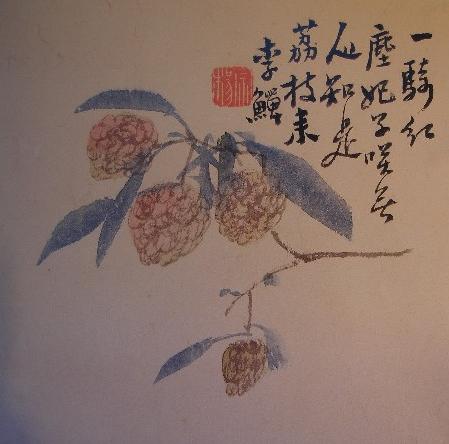 一騎紅
塵妃子咲無
人知是
荔枝来
李鱓